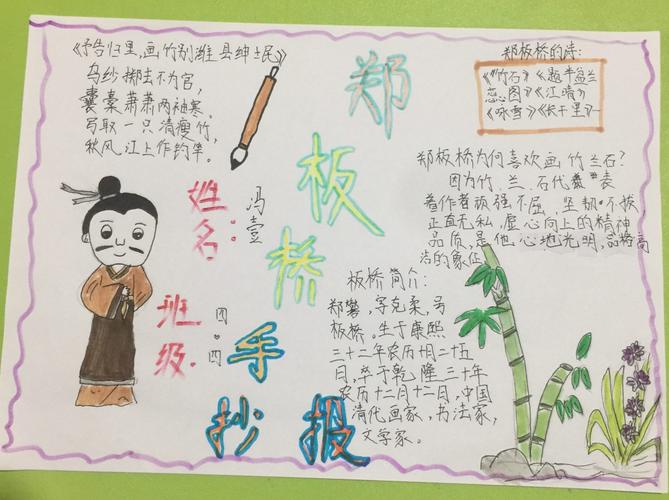 《予告归里,画竹别潍县绅士民》
乌纱掷去不为官,
囊橐萧萧两袖寒。
写取一只清瘦竹,
秋风江上作钓竿。
郑板桥
手抄报
姓名:冯壹
班级:四·四
郑板桥的诗:
《竹石》《题半盆兰
蕊图》《江晴》
《咏雪》《长干里》
郑板桥为何喜欢画竹兰石?
因为竹、兰、石代表
着作者顽强不屈、坚韧不拔
正直无私,虚心向上的精神
品质,是他心地光明,品格高
洁的象征
板桥简介:
郑燮,字克柔,号
板桥。生于康熙
三十二年农历十月二十五
日,卒于乾隆三十年
农历十二月十二日,中国
清代画家,书法家,
文学家。